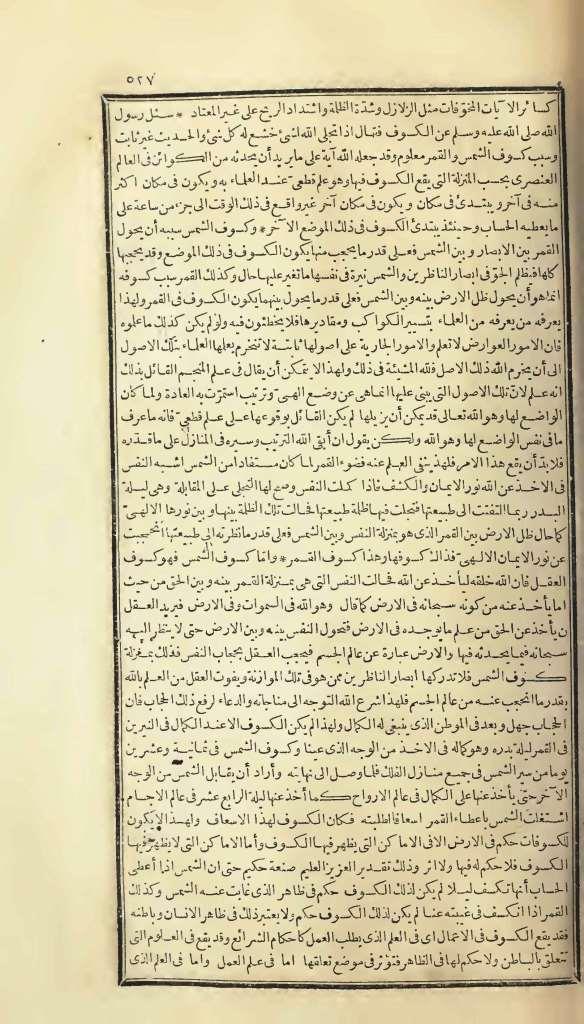 ٥٢٧
كسائر الآيات المخوّفات مثل الزلازل وشدّة الظلمة واشتداد الريح على غير المعتاد * سئل رسول
الله صلى الله عليه وسلم عن الكسوف فقال اذا تجلى الله لشئ خشع له كل شئ والحديث غير ثابت
وسبب كسوف الشمس والقمر معلوم وقد جعله الله آية على ما يريد أن يحدثه من الكوائن فى العالم
العنصرى بحسب المنزلة التى يقع الكسوف فيها وهو علم قطعى عند العلماء به ويكون فى مكان اكثر
منه فى آخر ويبتدئ فى مكان ويكون فى مكان آخر غير واقع فى ذلك الوقت الى جزء من ساعة على
ما يعطيه الحساب وحينئذ يبتدئ الكسوف فى ذلك الموضع الآخر * وكسوف الشمس سببه أن يحول
القمر بين الابصار وبين الشمس فعلى قدر ما يحجب منها يكون الكسوف فى ذلك الموضع وقد يحجبها
كلها فيظلم الجوّ فى ابصار الناظرين والشمس نيرة فى نفسها ما تغير عليها حال وكذلك القمر سبب كسوفه
انما هو أن يحول ظل الارض بينه وبين الشمس فعلى قدر ما يحول بينهما يكون الكسوف فى القمر ولهذا
يعرفه من يعرفه من العلماء بتسيير الكواكب ومقاديرها فلا يخطئون فيه ولو لم يكن كذلك ما علموه
فان الامور العوارض لا تعلم والامور الجارية على اصولها ثابتة لا تنخرم يعلمها العلماء بتلك الاصول
الى أن يخرم الله ذلك الاصل فلله المشيئة فى ذلك ولهذا لا يتمكن أن يقال فى علم المنجم القائل بذلك
انه علم لانّ تلك الاصول التى يبنى عليها انما هى عن وضع الهىّ وترتيب استمرّت به العادة ولما كان
الواضع لها وهو الله تعالى قد يمكن أن يزيلها لم يكن القائل بوقوعها على علم قطعى فانه ما عرف
ما فى نفس الواضع لها وهو الله ولكن يقول ان أبقى الله الترتيب وسيره فى المنازل على ما قدّره
فلا بدّ أن يقع هذا الامر فلهذا ينفى العلم عنه فضوء القمر لما كان مستفادا من الشمس اشبه النفس
فى الاخذ عن الله نور الايمان والكشف فاذا كملت النفس وصح لها التجلى على المقابلة وهى ليلة
البدر ربما التفتت الى طبيعتها فتجلت فيها ظلمة طبيعتها فحالت تلك الظلمة بينها وبين نورها الالهىّ
كما حال ظل الارض بين القمر الذى هو بمنزلة النفس وبين الشمس فعلى قدر ما نظرت الى طبيعتها انحجبت
عن نور الايمان الالهىّ فذلك كسوفها وهذا كسوف القمر * وامّا كسوف الشمس فهو كسوف
العقل فان الله خلقه ليأخذ عن الله فحالت النفس التى هى بمنزلة القمر بينه وبين الحق من حيث
اما يأخذ عنه من كونه سبحانه فى الارض كما قال وهو الله فى السموات وفى الارض فيريد العقل
ن يأخذ عن الحق من علم ما يوجده فى الارض فتحول النفس بينه وبين الارض حتى لا ينظر اليه
سبحانه فيما يحدثه فيها والارض عبارة عن عالم الجسم فيحجب العقل بحجاب النفس فذلك بمنزلة
كسوف الشمس فلا تدركها أبصار الناظرين ممن هو فى تلك الموازنة ويفوت العقل من العلم بالله
بقدر ما انحجب عنه من عالم الجسم فلهذا شرع الله التوجه الى مناجاته والدعاء لرفع ذلك الحجاب فان
الحجاب جهل وبعد فى الموطن الذى ينبغى له الكمال ولهذا لم يكن الكسوف الا عند الكمال فى النيرين
فى القمر ليلة بدره وهو كماله فى الاخذ من الوجه الذى عينا وكسوف الشمس فى ثمانية وعشرين
يوما من سير الشمس فى جميع منازل الفلك فلما وصل الى نهايته وأراد أن يقابل الشمس من الوجه
الآخر حتى يأخذ عنها على الكمال فى عالم الارواح كما أخذ عنها ليلة الرابع عشر فى عالم الاجسام
اشتغلت الشمس باعطاء القمر اسعافا لطلبته فكان الكسوف لهذا الاسعاف ولهذا لا يكون
للكسوفات حكم فى الارض الا فى الاماكن التى يظهر فيها الكسوف وأما الاماكن التى لا يظهر فيها
الكسوف فلا حكم له فيها ولا اثر وذلك تقدير العزيز العليم صنعة حكيم حتى ان الشمس اذا أعطى
الحساب أنها تكسف ليلا لم يكن لذلك الكسوف حكم فى ظاهر الذى غابت عنه الشمس وكذلك
القمر اذا انكسف فى غيبته عنا لم يكن لذلك الكسوف حكم ولا يعتبر ذلك فى ظاهر الانسان وباطنه
فقد يقع الكسوف فى الاعمال اى فى العلم الذى يطلب العمل كاحكام الشرائع وقد يقع فى العلوم التى
تتعلق بالباطن ولا حكم لها فى الظاهر فتؤثر فى موضع تعلقها اما فى علم العمل واما فى العلم الذى